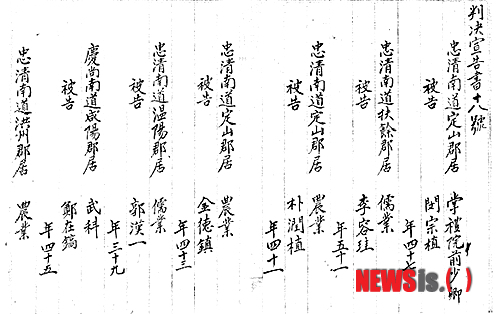 判決宣告書十八號
忠清南道定山郡居 掌禮院前少卿
被告 閔宗植
年四十七
忠清南道扶餘郡居 儒業
被告 李容珪
年五十一
忠清南道定山郡居 農業
被告 朴潤植
年四十一
忠清南道定山郡居 農業
被告 金德鎮
年四十三
忠清南道温陽郡居 儒業
被告 郭漢一
年三十九
慶尚南道咸陽郡居 武科
被告 鄭在鎬
年四十五
忠清南道洪州郡居 農業
NEWSis.( )